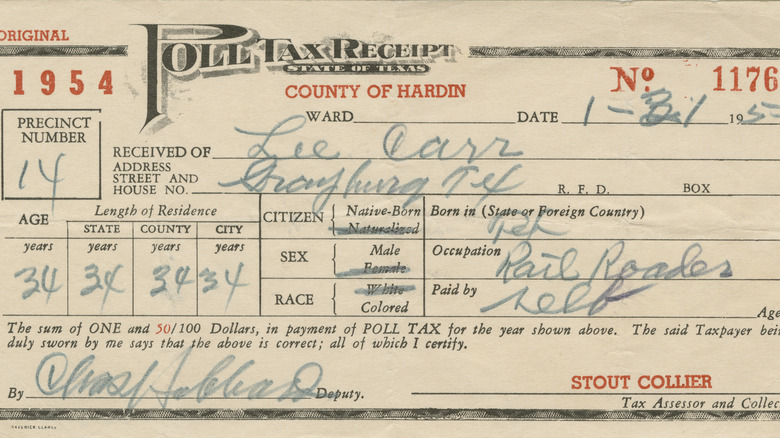 ORIGINAL
POLL TAX RECEIPT
STATE OF TEXAS
1954
COUNTY OF HARDIN
No 1176
WARD DATE 1-31 195
PRECINCT NUMBER 14
RECEIVED OF Lee Carr
ADDRESS STREET AND HOUSE NO. Grayburg TX R. F. D. BOX
AGE Length of Residence
STATE COUNTY CITY
years years years years
34 34 34 34
CITIZEN { Native-Born Naturalized
SEX { Male Female
RACE { White Colored
Born in (State or Foreign Country)
Tex
Occupation Rail Roader
Paid by self
Age
The sum of ONE and 50/100 Dollars, in payment of POLL TAX for the year shown above. The said Taxpayer bein
duly sworn by me says that the above is correct; all of which I certify.
By Chas Hobbard Deputy.
STOUT COLLIER
Tax Assessor and Collec